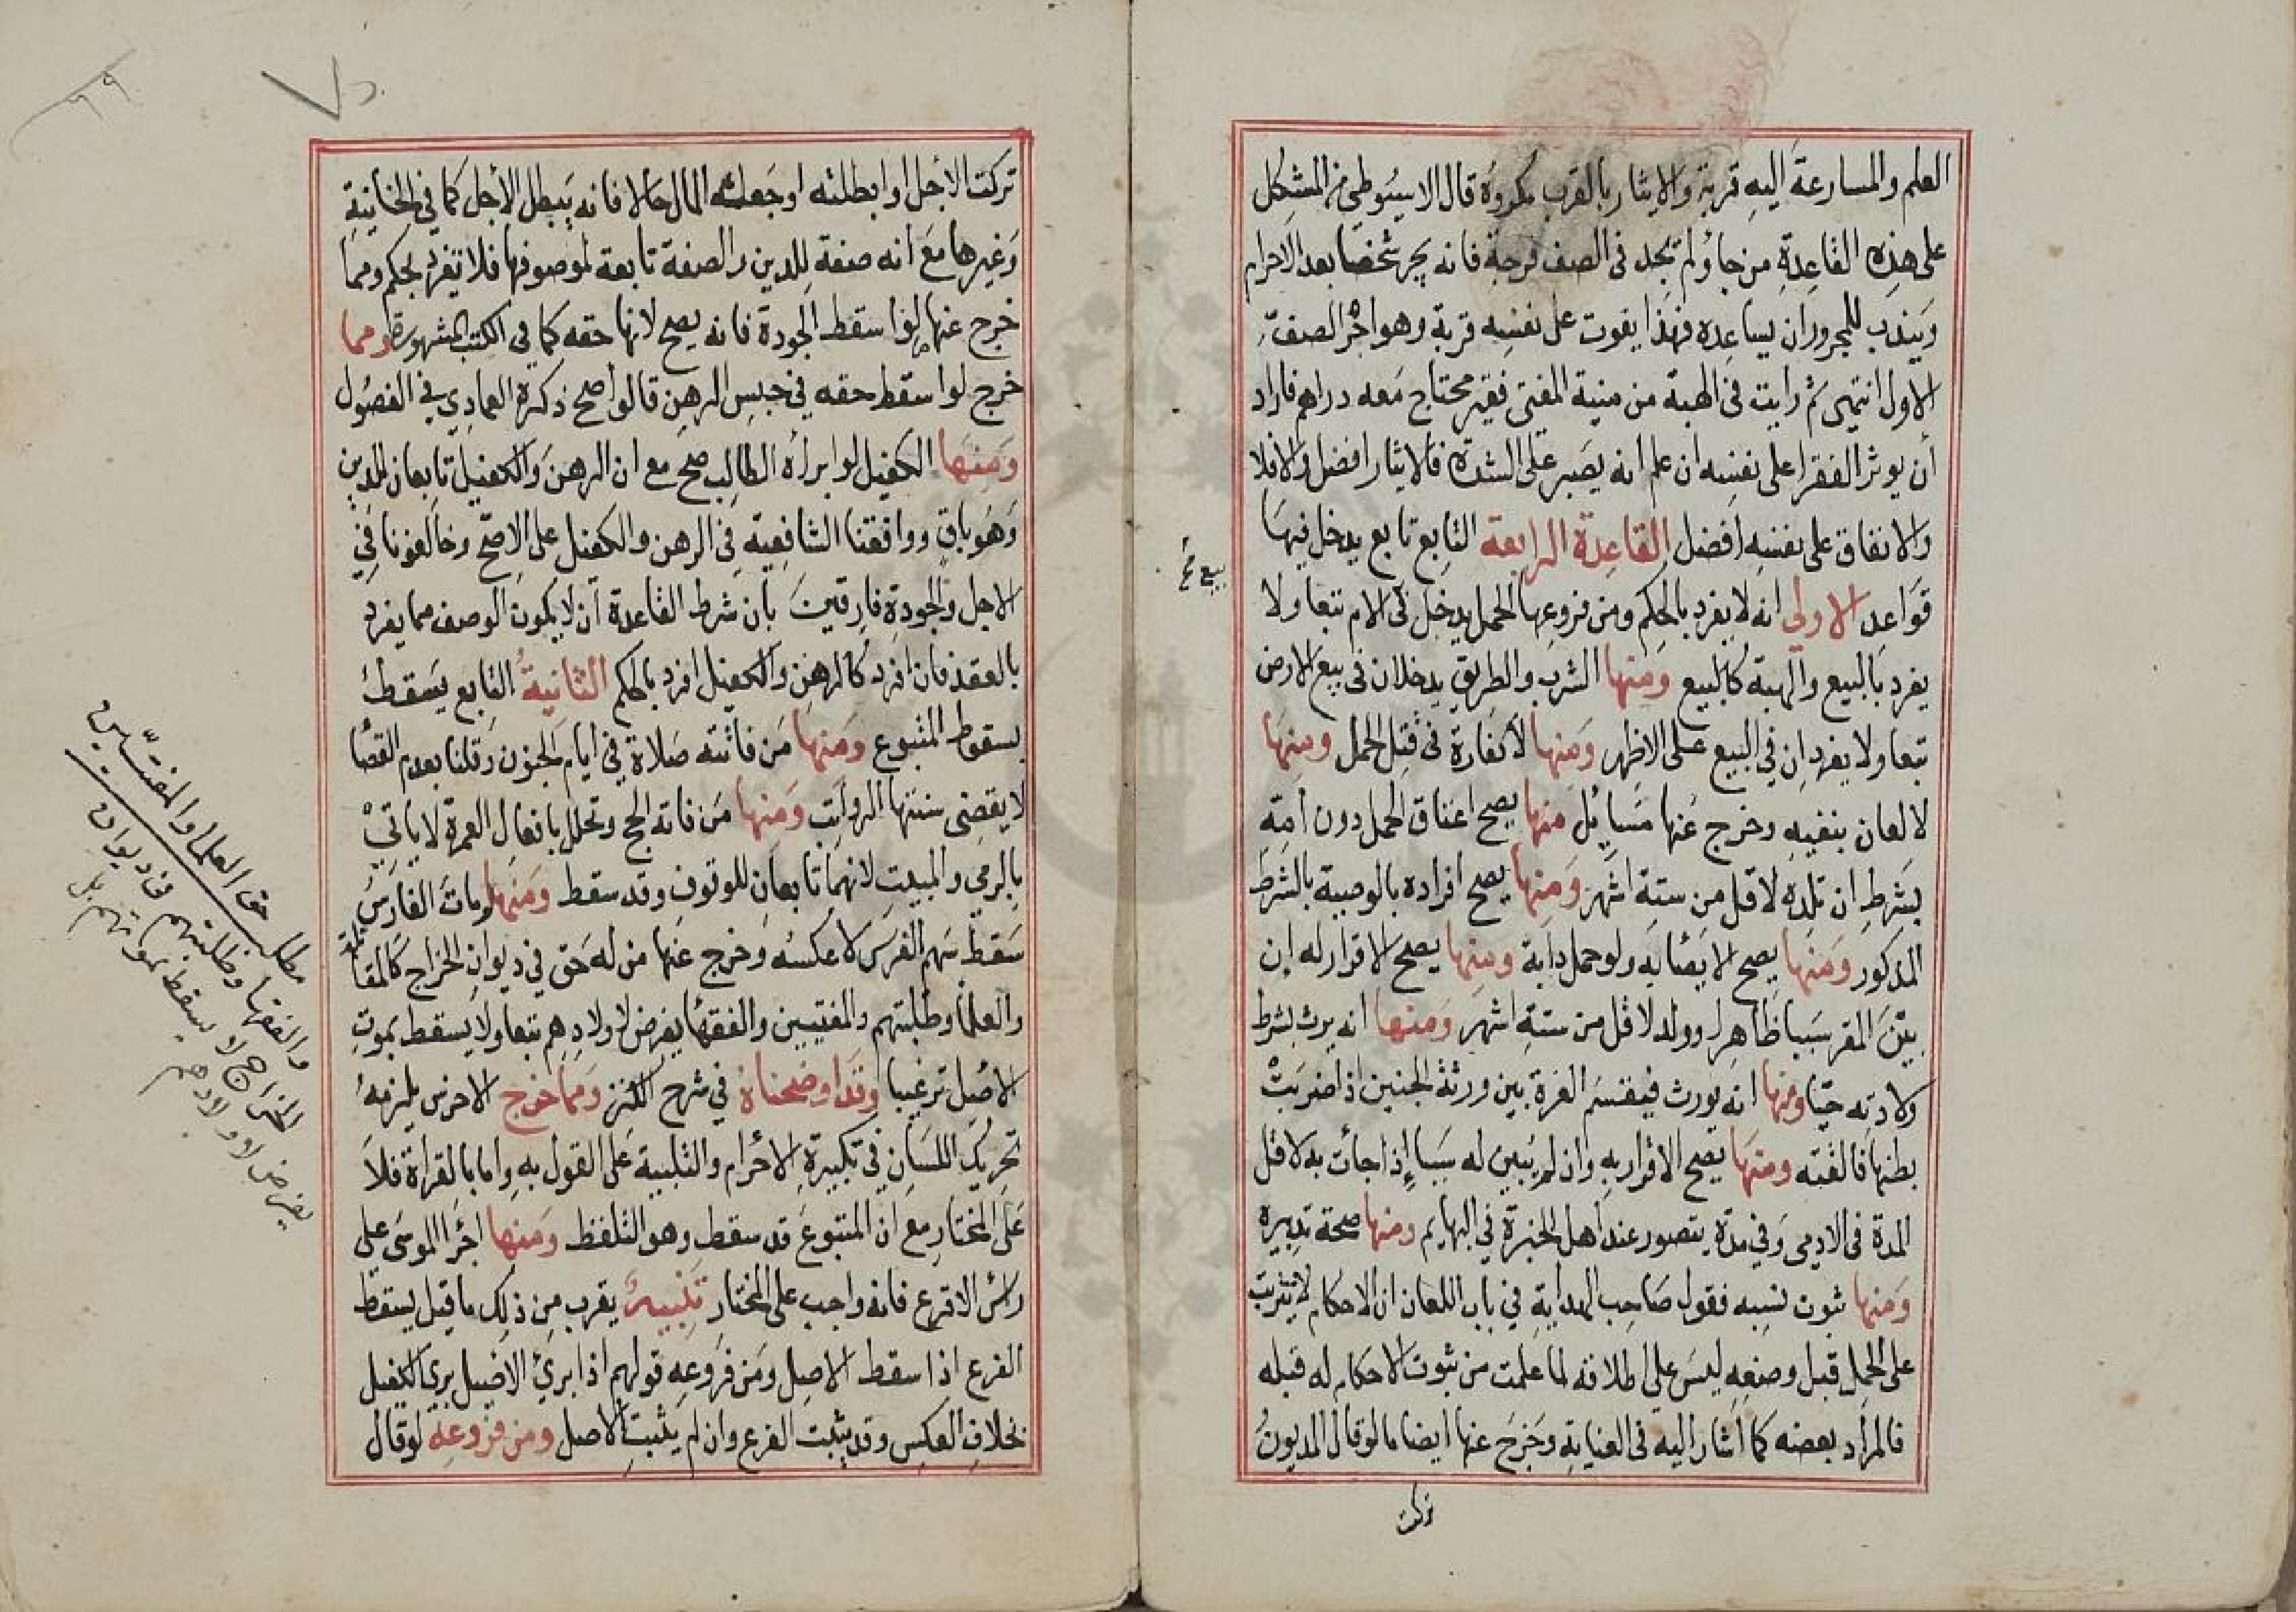 العلم والمسارعة اليه قربة والايثار بالقرب مكروه قال الاسيوطي من المشكل
على هذه القاعدة من جاء ولم يجد في الصف فرجة فانه يجر شخصا بعد الاحرام
ويندب للمجرور ان يساعده فهذا يفوت على نفسه قربة وهو اجر الصف
الاول انتهى ثم رايت في الهبة من منية المفتي فقير محتاج معه دراهم فاراد
أن يوثر الفقرا على نفسه ان علم انه يصبر على الشدة فالايثار افضل والا فلا
والانفاق على نفسه افضل القاعدة الرابعة التابع تابع يدخل فيها
قواعد الاولى انه لا يفرد بالحكم ومن فروعها الحمل يدخل في الام تبعا ولا
يفرد بالبيع والهبة كالبيع ومنها الشرب والطريق يدخلان في بيع الارض
تبعا ولا يفردان في البيع على الاظهر ومنها لا كفارة في قتل الحمل ومنها
لا لعان بنفيه وخرج عنها مسايل منها يصح اعتاق الحمل دون امه
بشرط ان تلده لاقل من ستة اشهر ومنها يصح افراده بالوصية بالشرط
المذكور ومنها يصح الايصا به ولو حمل دابة ومنها يصح الاقرار له ان
بين المقر سببا ظاهرا وولد لاقل من ستة اشهر ومنها انه يرث بشرط
ولادته حيا ومنها انه يورث فيقسم الغرة بين ورثة الجنين اذا ضربت
بطنها فالقته ومنها يصح الاقرار به وان لم يبين له سببا إذا جأت به لاقل
المدة في الادمي وفي مدة يتصور عند اهل الخبرة في البهايم ومنها صحة تدبيره
ومنها ثبوت نسبه فقول صاحب الهداية في باب اللعان ان الاحكام لا تترتب
على الحمل قبل وضعه ليس على اطلاقه لما علمت من ثبوت الاحكام له قبله
فالمراد بعضه كما اشار اليه في العناية وخرج عنها ايضا ما لو قال المديون
تركت
تركت الاجل او ابطلته او جعلت المال حالا فانه يبطل الأجل كما في الخانية
وغيرها مع انه صفة للدين والصفة تابعة لموصوفها فلا تفرد بحكم ومما
خرج عنها لو اسقط الجودة فانه يصح لانها حقه كما في الكتب المشهورة ومما
خرج لو اسقط حقه في حبس الرهن قالوا صح ذكره العمادي في الفصول
ومنها الكفيل لو ابراه الطالب صح مع ان الرهن والكفيل تابعان للدين
وهو باق ووافقتنا الشافعية في الرهن والكفيل على الاصح وخالفونا في
الاجل والجودة فارقين بان شرط القاعدة أن لا يكون الوصف مما يفرد
بالعقد فان افرد كالرهن والكفيل افرد بالحكم الثانية التابع يسقط
بسقوط المتبوع ومنها من فاتته صلاة في ايام الجنون وقلنا بعدم القضا
لا يقضي سنتها الرواتب ومنها من فاته الحج وتحلل بافعال العمرة لا ياتي
بالرمي والمبيت لانهما تابعان للوقوف وقد سقط ومنها لو مات الفارس
سقط سهم الفرس لا عكسه وخرج عنها من له حق في ديوان الخراج كالمقاتلة
والعلما وطلبتهم والمفتيين والفقها يفرض لاولادهم تبعا ولا يسقط بموت
الاصل ترغيبا وقد اوضحناه في شرح الكنز ومما خرج الاخرس يلزمه
تحريك اللسان في تكبيرة الاحرام والتلبية على القول به واما بالقراة فلا
على المختار مع ان المتبوع قد سقط وهو التلفظ ومنها اجرا الموسى على
راس الاقرع فانه واجب على المختار تنبيه يقرب من ذلك ما قيل يسقط
الفرع اذا سقط الاصل ومن فروعه قولهم اذا برئ الاصيل برئ الكفيل
بخلاف العكس وقد يثبت الفرع وان لم يثبت الاصل ومن فروعه لو قال
مطلب حق العلما والمفتيين
والفقها وطلبتهم في ديوان
الخراج لا يسقط بموتهم بل
يفرض لاولادهم
٩٩